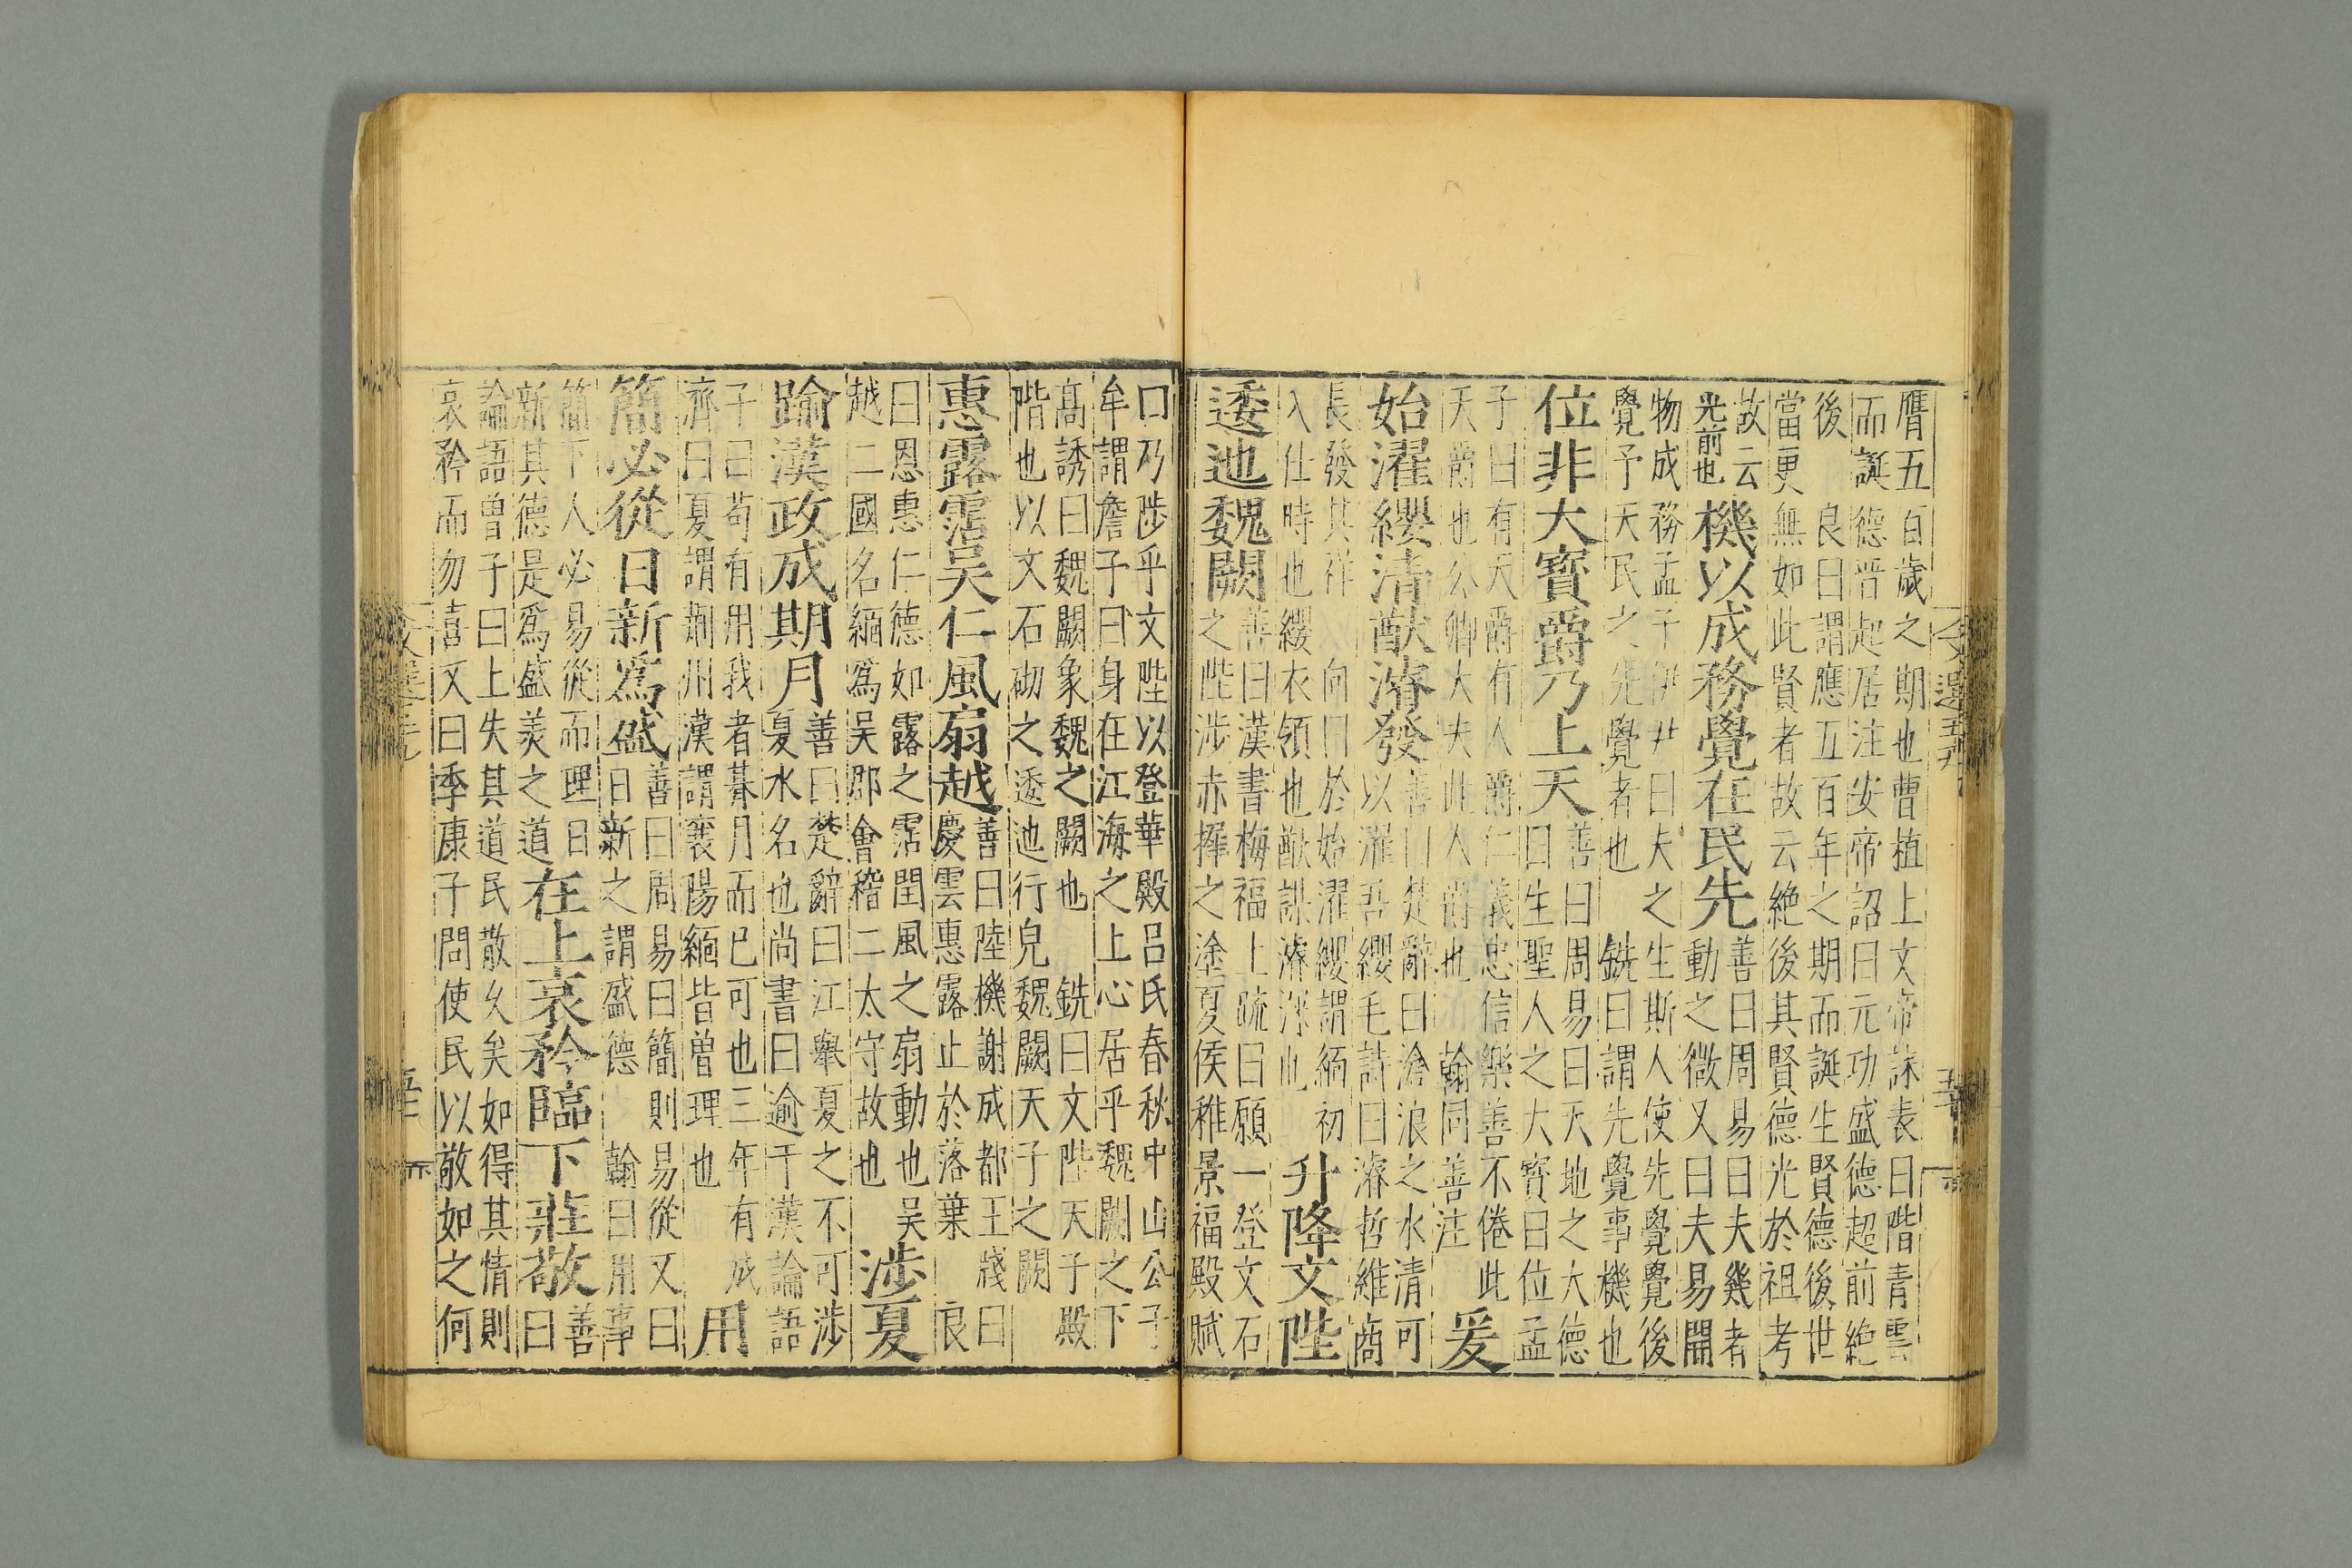 膺五百歲之期也曹植上文帝誄表曰階青雲
而誕德晋起居注安帝詔曰元功盛德超前絶
後 良曰謂應五百年之期而誕生賢德後世
當更無如此賢者故云絶後其賢德光於祖考
故云
光前也
機以成務覺在民先
善曰周易曰夫幾者
動之微又曰夫易開
物成務孟子伊尹曰夫之生斯人使先覺覺後
覺予天民之先覺者也 銑曰謂先覺事機也
位非大寶爵乃上天
善曰周易曰天地之大德
曰生聖人之大寶曰位孟
子曰有天爵有人爵仁義忠信樂善不倦此
天爵也公卿大夫此人爵也 翰同善注
爰
始濯纓清猷濬發
善曰楚辭曰滄浪之水清可
以濯吾纓毛詩曰濬哲維商
長發其祥 向曰於始濯纓謂緬初
入仕時也纓衣領也猷謀濬深也
升降文陛
逶迤魏闕
善曰漢書梅福上疏曰願一登文石
之陛涉赤墀之塗夏侯稚景福殿賦
口乃陟乎文陛以登華殿吕氏春秋中山公子
牟謂詹子曰身在江海之上心居乎魏闕之下
髙誘曰魏闕象魏之闕也 銑曰文陛天子殿
階也以文石砌之逶迤行皃魏闕天子之闕
惠露霑吴仁風扇越
善曰陸機謝成都王牋曰
慶雲惠露止於落葉 良
曰恩惠仁德如露之霑閏風之扇動也吴
越二國名緬爲吴郡會稽二太守故也
涉夏
踰漢政成期月
善曰楚辭曰江舉夏之不可涉
夏水名也尚書曰逾于漢論語
子曰苟有用我者朞月而已可也三年有成
濟曰夏謂荆州漢謂襄陽緬皆曾理也
用
簡必從日新爲盛
善曰周易曰簡則易從又曰
日新之謂盛德 翰曰用事
簡下人必易從而理日
新其德是爲盛美之道
在上哀矜臨下莊敬
善
曰
論語曾子曰上失其道民散久矣如得其情則
哀矜而勿喜又曰季康子問使民以敬如之何